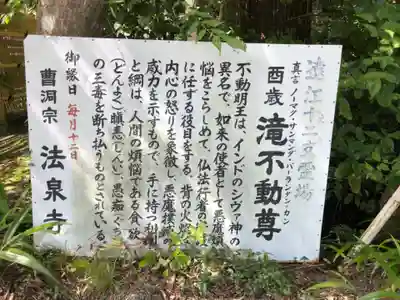 遠江十二支霊場
真言 ノーマク・サンマンダ・バーランダン・カン
酉歳 滝不動尊
不動明王は、インドのシヴァ神の
異名で、如来の使者として悪魔煩
悩をこらしめて、仏法行者の
に任する役目をする。背の火炎は
内心の怒りを象徴し、悪魔撲滅の
威力を示すもので、手に持つ利剣
と綱は、人間の煩悩である貪欲
(とんよく)瞋恚(しんい)、愚痴(ぐち)
の三毒を断ち払うものとされている。
御縁日 毎月十二日
曹洞宗 法泉寺